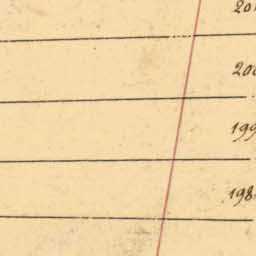 201
200
199
198